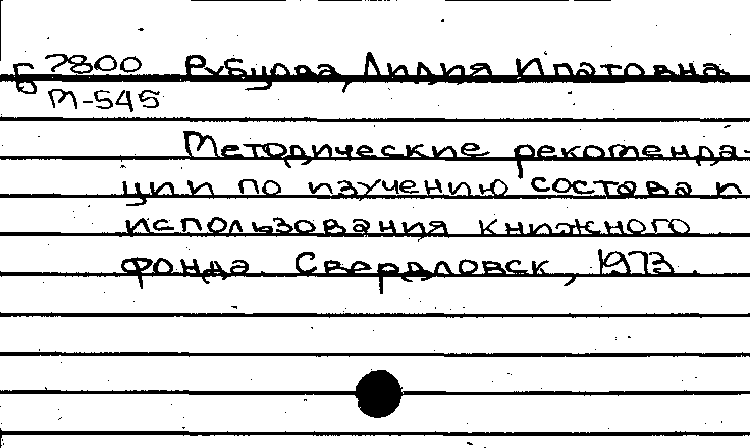 Б 7800 Рубцова, Лидия Ипатовна
М-545
Методические рекоменда-
ции по изучению состава и
использования книжного
фонда. Свердловск, 1973.